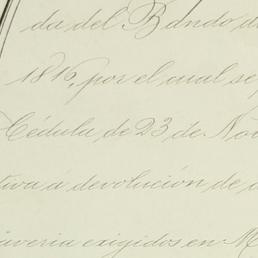 da del Bando de
1816, por el cual se
Cédula de 23 de Nov
tiva á devolución de
averia exigidos en M